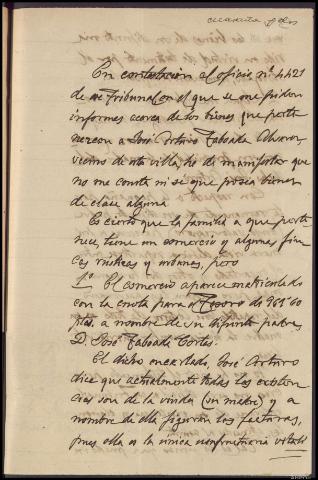 cuarenta y dos
En contestación al oficio nº 4421
de ese Tribunal en el que se me piden
informes acerca de los bienes que perte
nezcan a José Arturo Taboada Alvarez,
vecino de esta villa, he de manifestar que
no me consta ni se que posea bienes
de clase alguna
Es cierto que la familia a que perte
nece, tiene un comercio y algunas fin
cas rústicas y urbanas, pero
1º El comercio aparece matriculado
con la cuota para el Tesoro de 961'60
ptas. a nombre de su difunto padre,
D. José Taboada Cortes.
El dicho encartado, José Arturo
dice que actualmente todas las existen
cias son de la viuda (su madre) y a
nombre de ella figuran las facturas,
pues ella es la única usufructuaria vitali